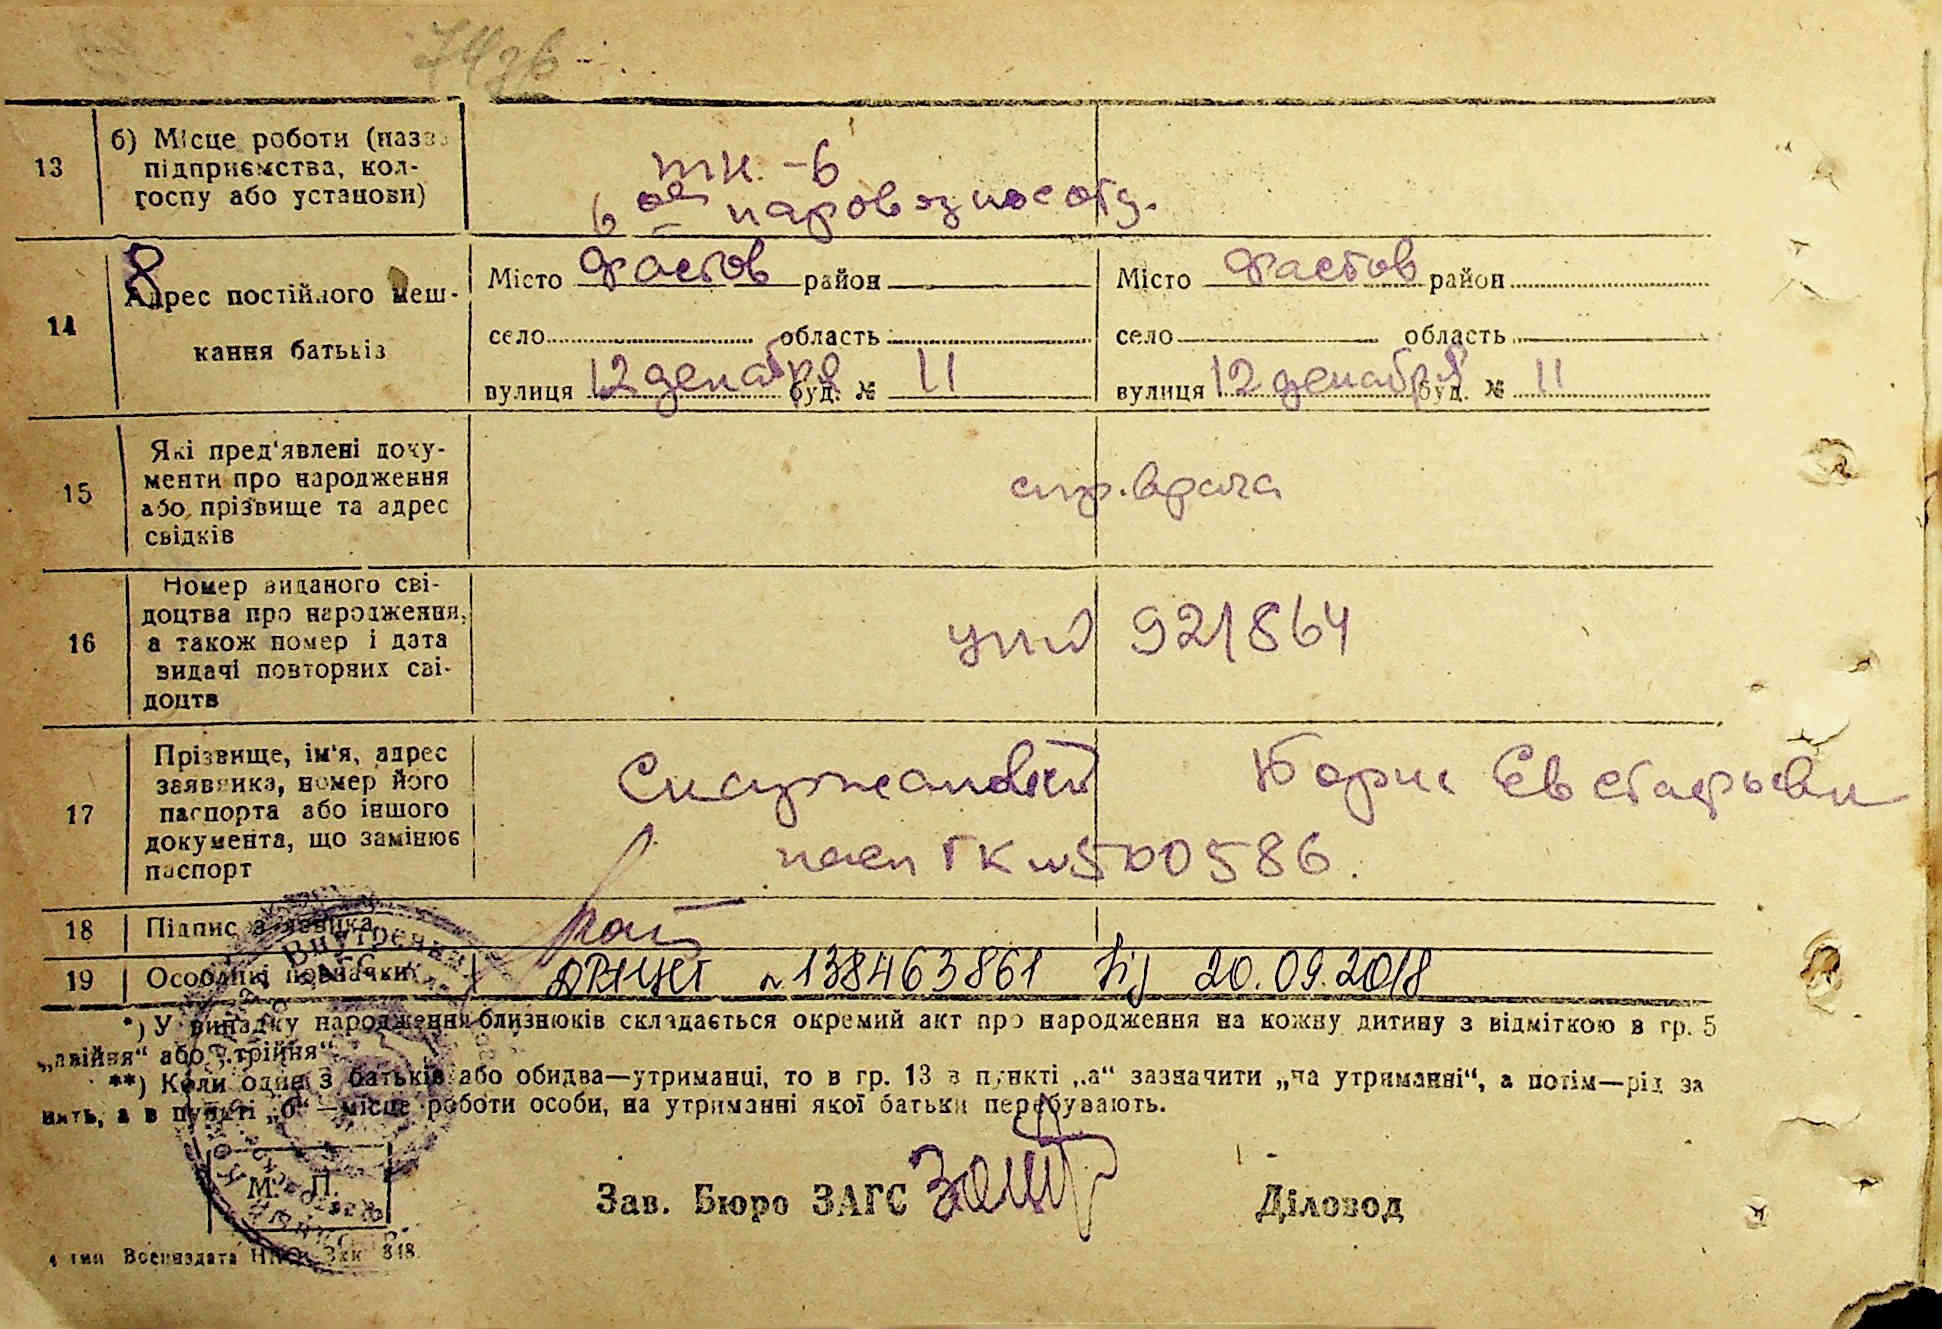 13
б) Місце роботи (назва
підприємства, кол-
госпу або установи)
14
8
Адрес постійного меш-
кання батьків
Місто Фастов район
село область
вулиця 12 декабря буд. № 11
Місто Фастов район
село область
вулиця 12 декабря буд. № 11
15
Які пред'явлені доку-
менти про народження
або прізвище та адрес
свідків
спр. врача
16
Номер виданого сві-
доцтва про народження,
а також номер і дата
видачі повторних сві-
доцтв
921864
17
Прізвище, ім'я, адрес
заявника, номер його
паспорта або іншого
документа, що замінює
паспорт
Борис Евстафьеви
пасп ГК № 500586.
18 Підпис заявника
19 Особливі позначки
ДРАЦСГ № 138463861 від 20.09.2018
*) У випадку народження близнюків складається окремий акт про народження на кожну дитину з відміткою в гр. 5
„двійня“ або „трійня“.
**) Коли один з батьків або обидва—утриманці, то в гр. 13 в пункті „а“ зазначити „на утриманні“, а потім—рід за
нять, а в пункті „б“—місце роботи особи, на утриманні якої батьки перебувають.
М. П.
Зав. Бюро ЗАГС
Діловод
4 тип Воениздата НКО Зак 848